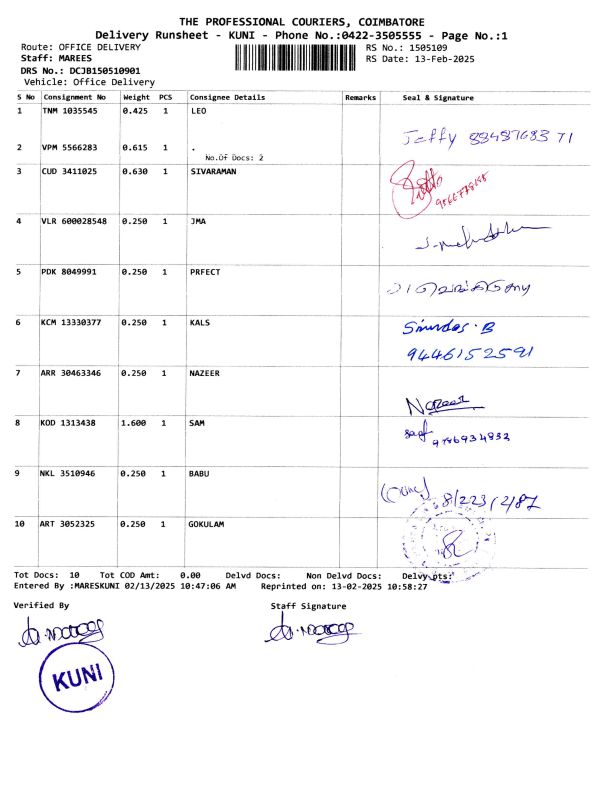 THE PROFESSIONAL COURIERS, COIMBATORE
Delivery Runsheet - KUNI - Phone No.:0422-3505555 - Page No.:1
Route: OFFICE DELIVERY RS No.: 1505109
Staff: MAREES RS Date: 13-Feb-2025
DRS No.: DCJB150510901
Vehicle: Office Delivery
S No Consignment No Weight PCS Consignee Details Remarks Seal & Signature
1 TNM 1035545 0.425 1 LEO
Jeffy
2 VPM 5566283 0.615 1 .
No.Of Docs: 2
3 CUD 3411025 0.630 1 SIVARAMAN
4 VLR 600028548 0.250 1 JMA
5 PDK 8049991 0.250 1 PRFECT
6 KCM 13330377 0.250 1 KALS
9446152591
7 ARR 30463346 0.250 1 NAZEER
Nazeer
8 KOD 1313438 1.600 1 SAM
9786934832
9 NKL 3510946 0.250 1 BABU
10 ART 3052325 0.250 1 GOKULAM
Tot Docs: 10 Tot COD Amt: 0.00 Delvd Docs: Non Delvd Docs: Delvy pts:
Entered By :MARESKUNI 02/13/2025 10:47:06 AM Reprinted on: 13-02-2025 10:58:27
Verified By Staff Signature
KUNI